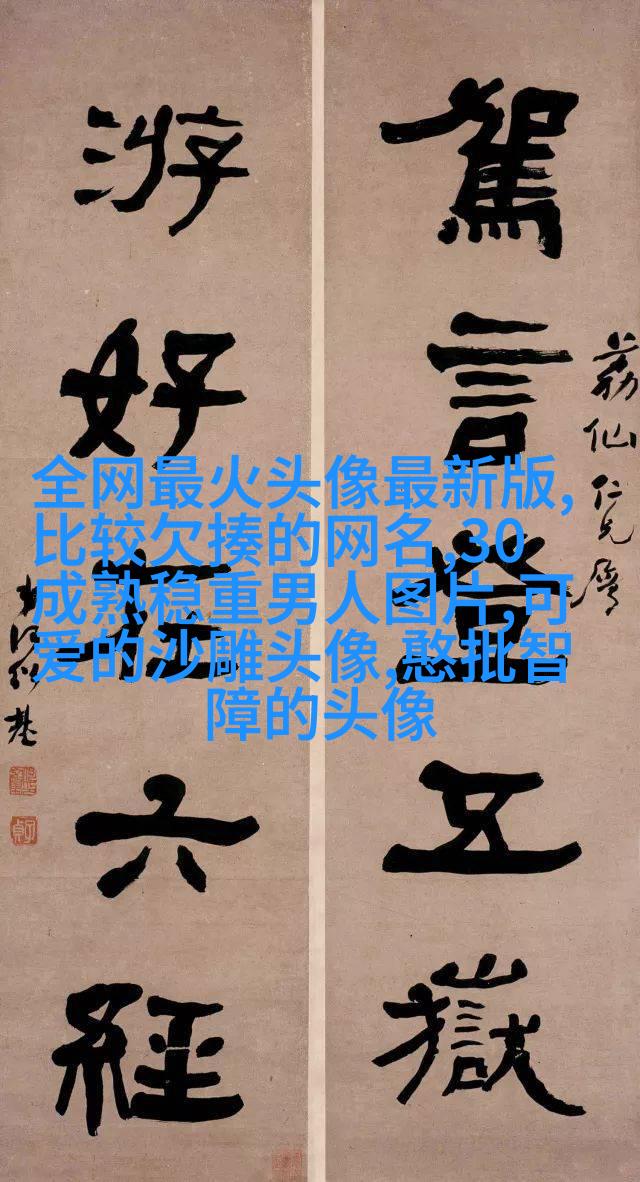 荔仙仁兄屬
駕言登五嶽
游好在六經
弟何紹基
子貞
全网最火头像最新版,
比较欠揍的网名,30
成熟稳重男人图片,可
爱的沙雕头像,憨批智
障的头像